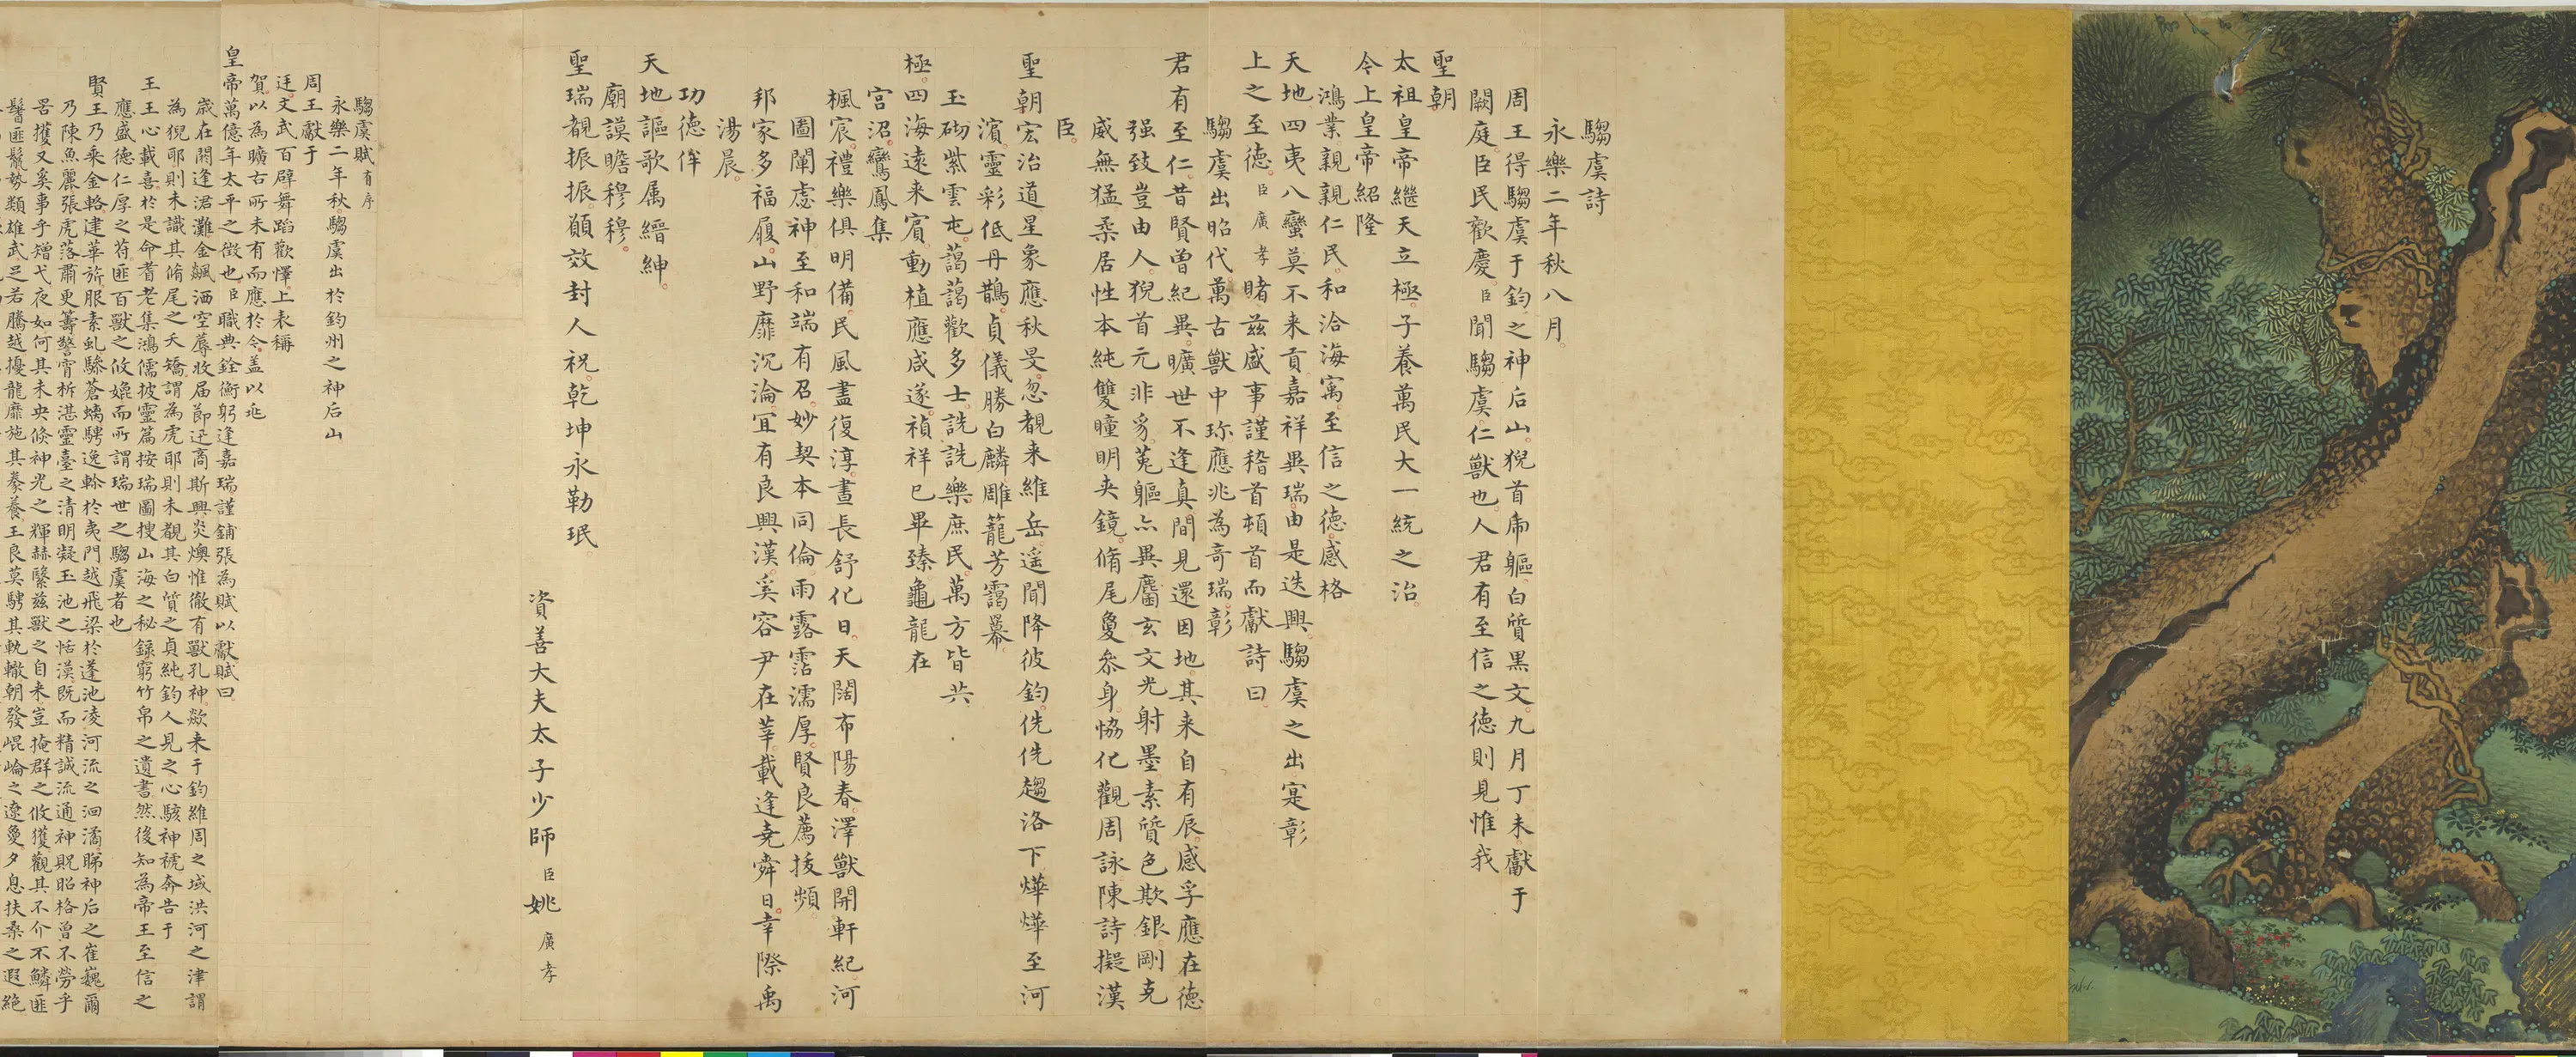 騶虞詩
永樂二年秋八月
周王得騶虞于鈞之神后山猊首虎軀白質黑文九月丁未獻于
闕庭臣民歡慶臣聞騶虞仁獸也人君有至信之德則見惟我
聖朝
太祖皇帝繼天立極子養萬民大一統之治
今上皇帝紹隆
鴻業親親仁民和洽海寓至信之德感格
天地四夷八蠻莫不来貢嘉祥異瑞由是迭興騶虞之出寔彰
上之至德臣廣孝睹兹盛事謹稽首頓首而獻詩曰
騶虞出昭代萬古獸中珎應兆為奇瑞彰
君有至仁昔賢曽紀異曠世不逢真間見還因地其来自有辰感孚應在德
强致豈由人猊首元非豸菟軀亦異麕玄文光射墨素質色欺銀剛克
威無猛柔居性本純雙瞳明夾鏡脩尾敻叅身恊化觀周詠陳詩擬漢
臣
聖朝宏治道星象應秋旻忽覩来維岳遥聞降彼鈞侁侁趨洛下燁燁至河
濵靈彩低丹鵲貞儀勝白麟雕籠芳靄羃
玉砌紫雲屯藹藹歡多士詵詵樂庶民萬方皆共
極四海遠来賓動植應咸遂禎祥已畢臻龜龍在
宫沼鸞鳳集
楓宸禮樂俱明備民風盡復淳晝長舒化日天闊布陽春澤獸開軒紀河
圖闡虙神至和端有召妙契本同倫雨露霑濡厚賢良薦拔頻
邦家多福履山野靡沉淪冝有良興漢奚容尹在莘載逢堯舜日幸際禹
湯晨
功德侔
天地謳歌属縉紳
廟謨瞻穆穆
聖瑞覩振振願效封人祝乾坤永勒珉
資善大夫太子少師臣姚廣孝
騶虞賦有序
永樂二年秋騶虞出於鈞州之神后山
周王獻于
廷文武百辟舞蹈歡懌上表稱
賀以為曠古所未有而應於今盖以兆
皇帝萬億年太平之徵也臣職典銓衡躬逢嘉瑞謹鋪張為賦以獻賦曰
歳在閼逢涒灘金飆洒空蓐收届莭迅商斯興炎燠惟徹有獸孔神歘来于鈞維周之域洪河之津謂
為猊耶則未識其脩尾之夭矯謂為虎耶則未覩其白質之貞純鈞人見之心駭神褫奔告于
王王心載喜於是命耆老集鴻儒披靈篇按瑞圖搜山海之秘録窮竹帛之遺書然後知為帝王至信之
應盛德仁厚之苻匪百獸之攸媲而所謂瑞世之騶虞者也
賢王乃乘金輅建華旂服素虬驂蒼螭騁逸軨於夷門越飛梁於蓬池凌河流之洄潏睇神后之崔巍爾
乃陳魚麗張虎落肅更籌警宵柝湛靈臺之清明凝玉池之恬漠既而精誠流通神貺昭格曽不勞乎
罟擭又奚事乎矰弋夜如何其未央倐神光之輝赫繄兹獸之自来豈掩群之攸獲觀其不介不鱗匪
鬐匪鬛勢類雄武足若騰越擾龍靡施其豢養王良莫騁其軌轍朝發崐崘之遼敻夕息扶桑之遐絶